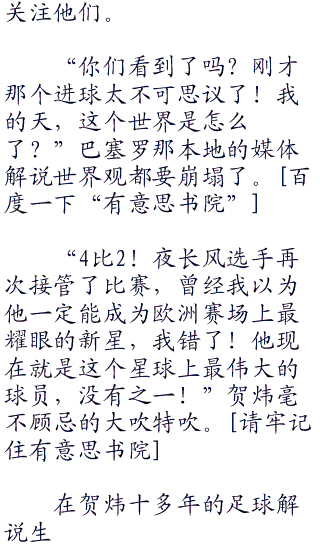 关注他们。
“你们看到了吗？刚才
那个进球太不可思议了！我
的天，这个世界是怎么
了？”巴塞罗那本地的媒体
解说世界观都要崩塌了。[百
度一下“有意思书院”]
“4比2！夜长风选手再
次接管了比赛，曾经我以为
他一定能成为欧洲赛场上最
耀眼的新星，我错了！他现
在就是这个星球上最伟大的
球员，没有之一！”贺炜毫
不顾忌的大吹特吹。[请牢记
住有意思书院]
在贺炜十多年的足球解
说生